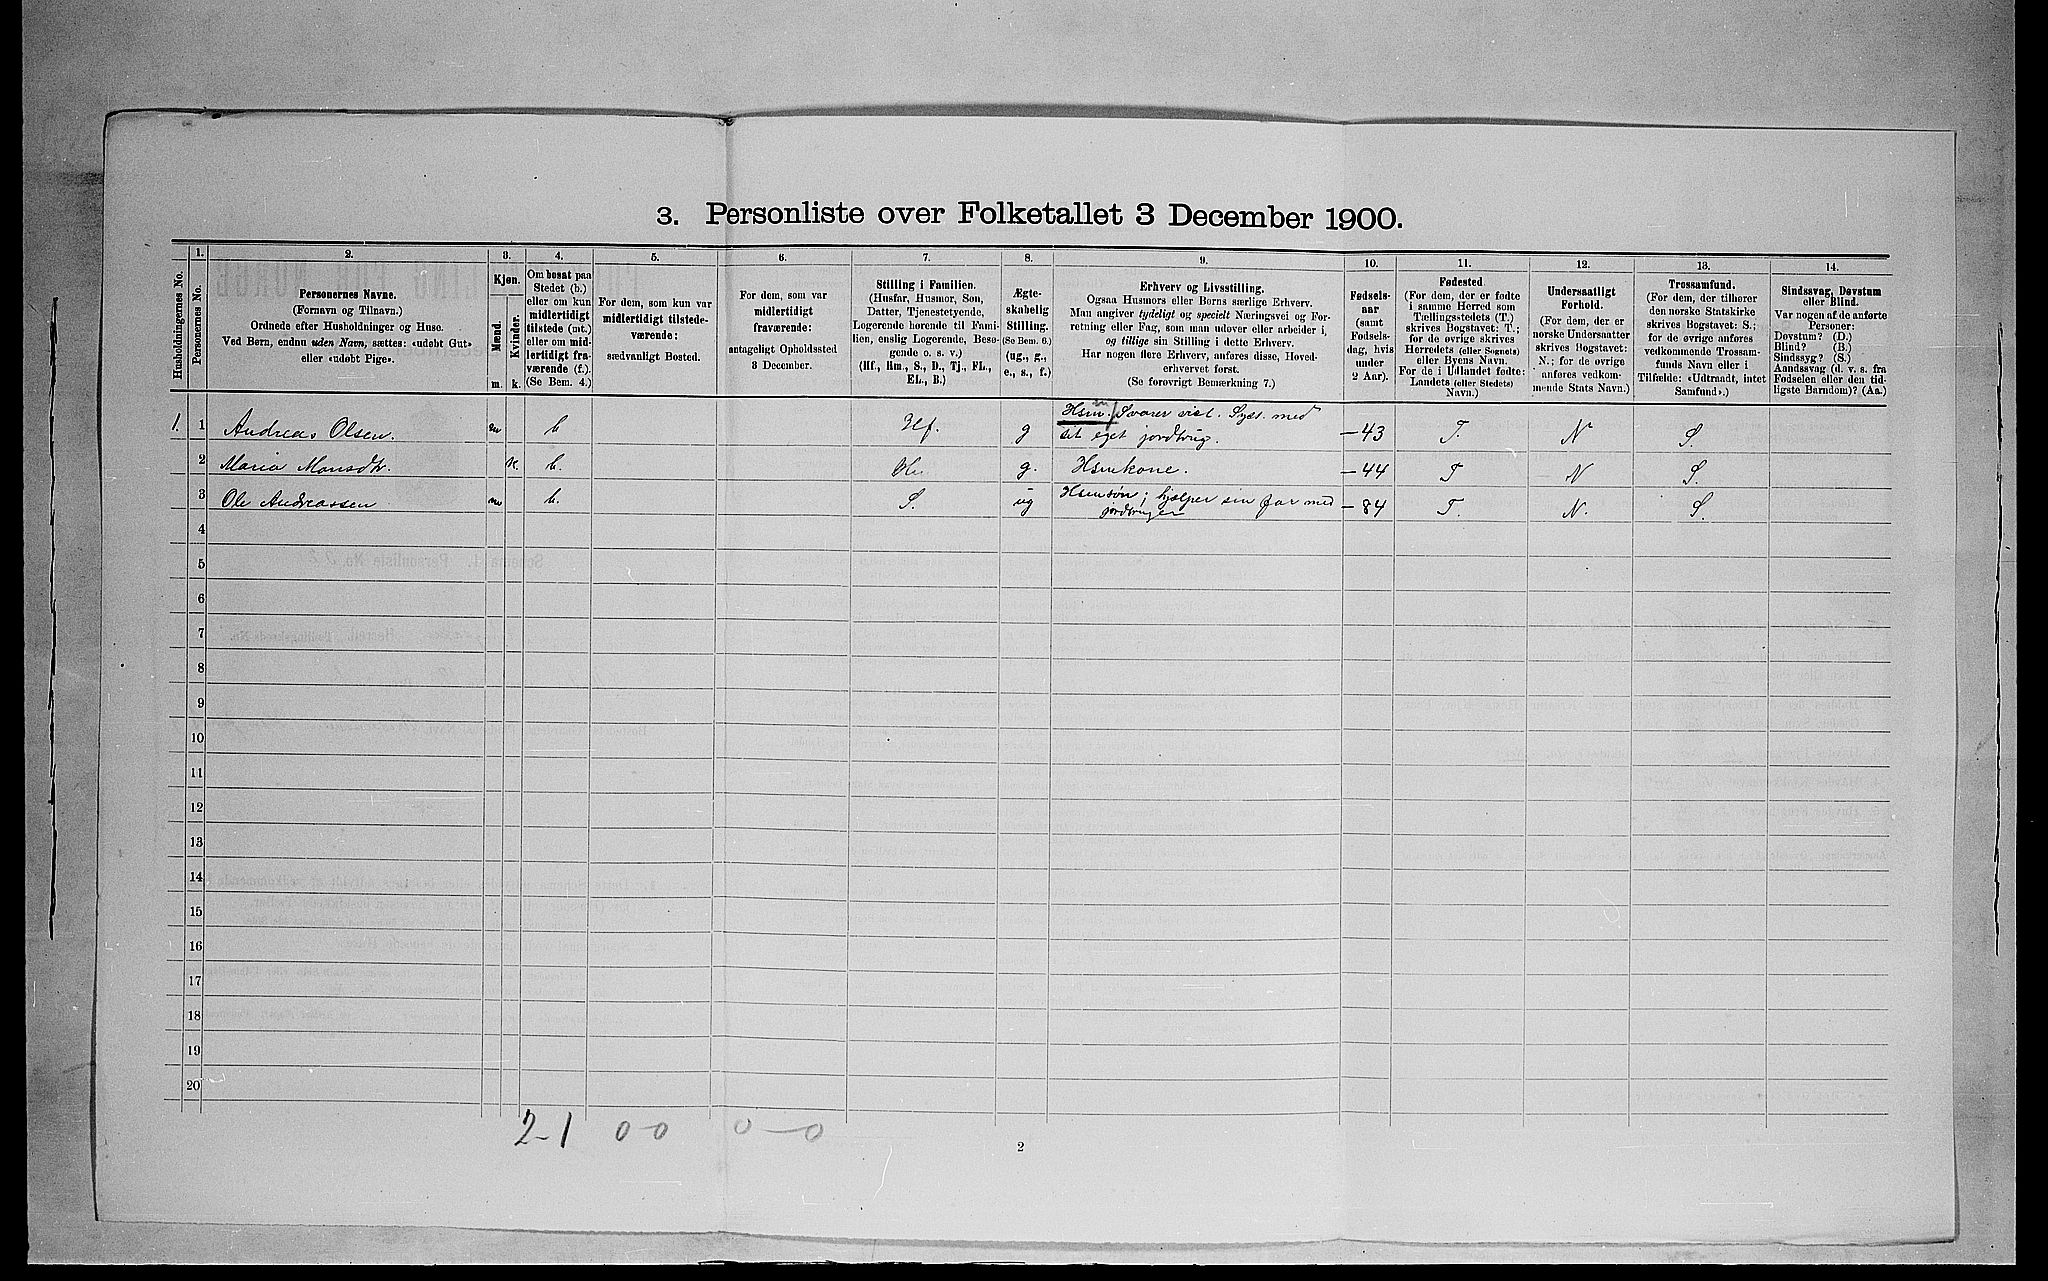 3. Personliste over Folketallet 3 December 1900.
1. 2. 3. 4. 5. 6. 7. 8. 9. 10. 11. 12. 13. 14.
Husholdningernes No.
Personernes No.
Personernes Navne.
(Fornavn og Tilnavn.)
Ordnede efter Husholdninger og Huse.
Ved Børn, endnu uden Navn, sættes: «udøbt Gut»
eller «udøbt Pige».
Kjøn.
Mænd.
Kvinder.
m. k.
Om bosat paa
Stedet (b.)
eller om kun
midlertidigt
tilstede (mt.)
eller om mid-
lertidigt fra-
værende (f.).
(Se Bem. 4.)
For dem, som kun var
midlertidigt tilstede-
værende:
sædvanligt Bosted.
For dem, som var
midlertidigt
fraværende:
antageligt Opholdssted
3 December.
Stilling i Familien.
(Husfar, Husmor, Søn,
Datter, Tjenestetyende,
Logerende hørende til Fami-
lien, enslig Logerende, Besø-
gende o. s. v.)
(Hf., Hm., S., D., Tj., FL.,
EL., B.)
Ægte-
skabelig
Stilling.
(Se Bem. 6.)
(ug., g.,
e., s., f.)
Erhverv og Livsstilling.
Ogsaa Husmors eller Børns særlige Erhverv.
Man angiver tydeligt og specielt Næringsvei og For-
retning eller Fag, som man udøver eller arbeider i,
og tillige sin Stilling i dette Erhverv.
Har nogen flere Erhverv, anføres disse, Hoved-
erhvervet først.
(Se forøvrigt Bemærkning 7.)
Fødsels-
aar
(samt
Fødsels-
dag, hvis
under
2 Aar).
Fødested.
(For dem, der er fødte
i samme Herred som
Tællingsstedets (T.)
skrives Bogstavet: T.;
for de øvrige skrives
Herredets (eller Sognets)
eller Byens Navn.
For de i Udlandet fødte:
Landets (eller Stedets)
Navn.)
Undersaatligt
Forhold.
(For dem, der er
norske Undersaatter
skrives Bogstavet:
N.; for de øvrige
anføres vedkom-
mende Stats Navn.)
Trossamfund.
(For dem, der tilhører
den norske Statskirke
skrives Bogstavet: S.;
for de øvrige anføres
vedkommende Trossam-
funds Navn eller i
Tilfælde: «Udtraadt, intet
Samfund».)
Sindssvag, Døvstum
eller Blind.
Var nogen af de anførte
Personer:
Døvstum? (D.)
Blind? (B.)
Sindssyg? (S.)
Aandssvag (d. v. s. fra
Fødselen eller den tid-
ligste Barndom)? (Aa.)
1. 1 Andreas Olsen. m b Hf. g Hsm. Svarer vist. Sys. med
sit eget jordbrug. –43 T. N S.
2 Maria Monsdtr. k. b. g. Hsmkone. –44 T N S.
3 Ole Andreassen m b. S. ug Hsmsøn; hjelper sin far med
jordbruget –84 T. N. S.
4
5
6
7
8
9
10
11
12
13
14
15
16
17
18
19
20
2-1 0-0 0-0
2